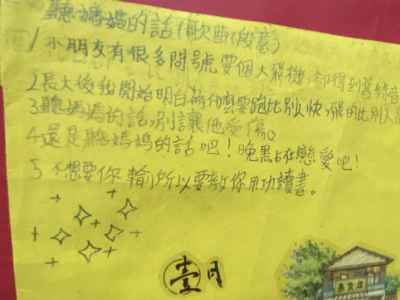 聽媽媽的話
1小朋友有很多問號要個大飛機,却得到舊錄音
2長大後我開始明白為什麼要跑比別快,飛的比別人
3聽媽媽的話,別讓他受傷。
4還是聽媽媽的話吧!晚點在戀愛吧!
5不想要你輸,所以要教你用功讀書。
壹月